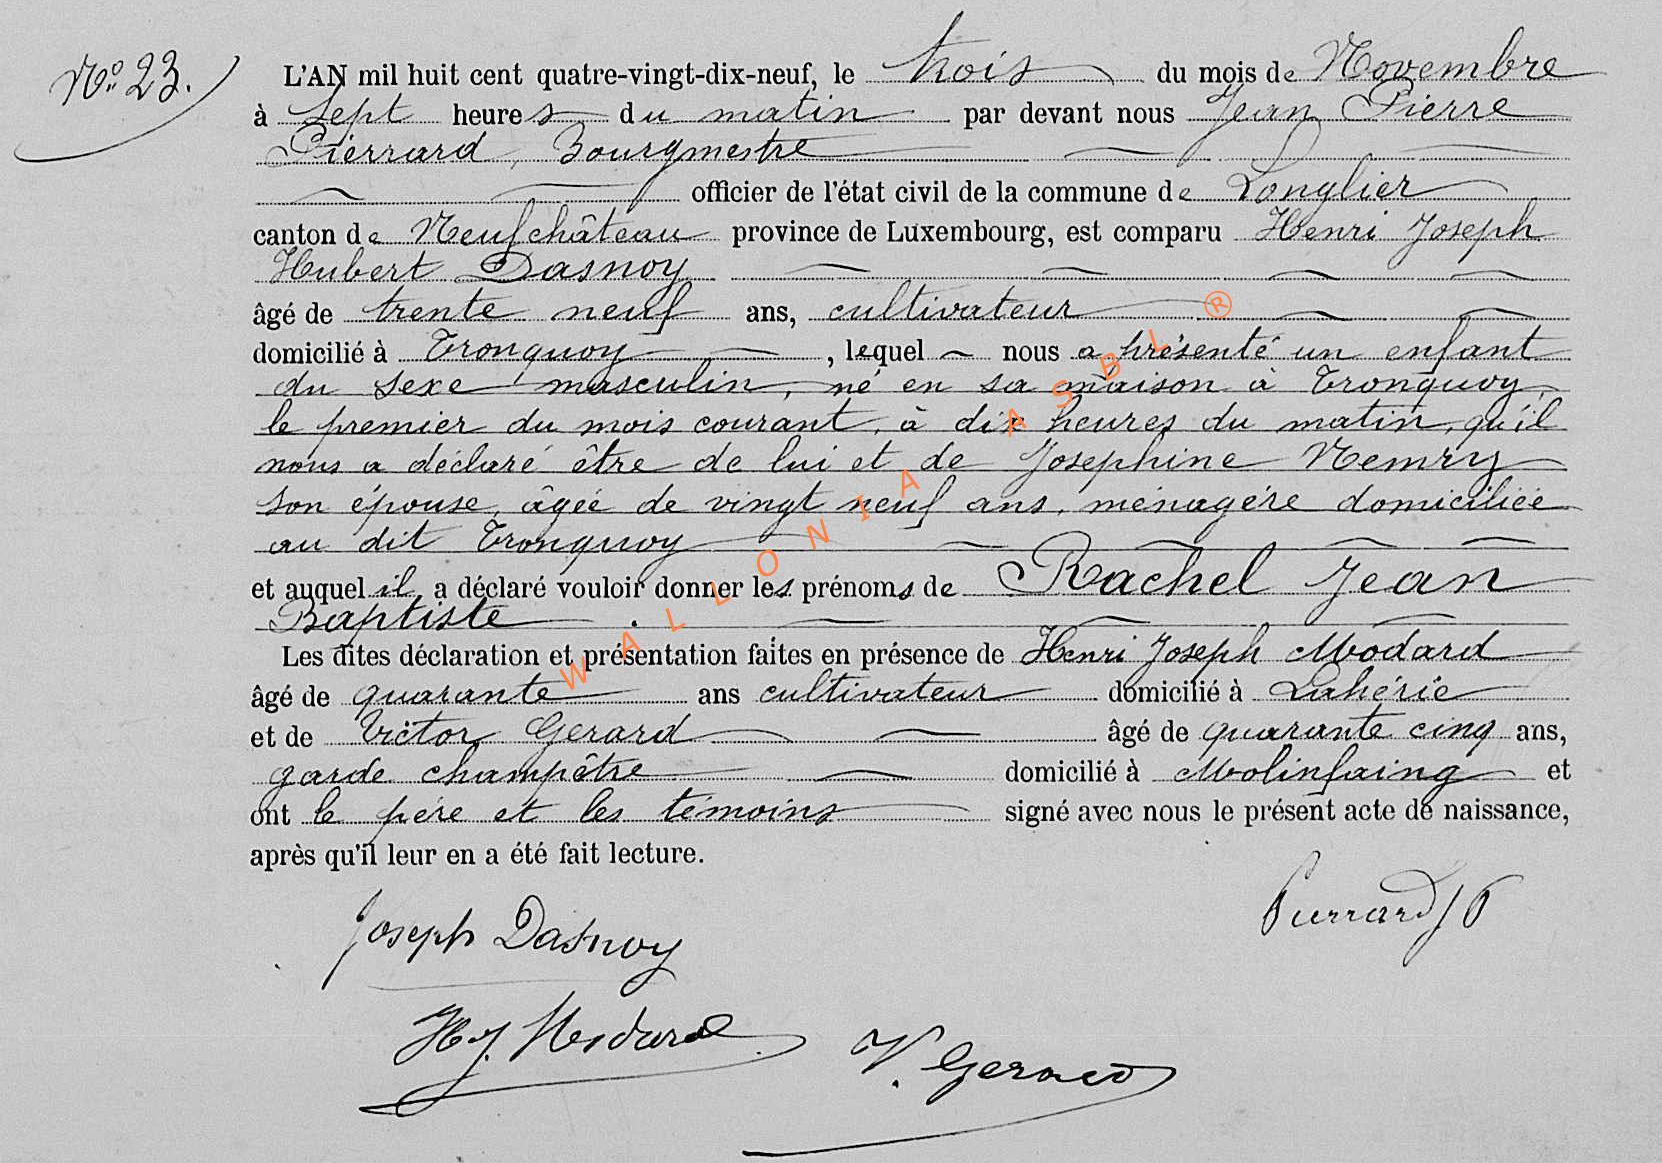 N° 23.
L'AN mil huit cent quatre-vingt-dix-neuf, le trois du mois de Novembre
à sept heures du matin par devant nous Jean Pierre
Pierrard, Bourgmestre
officier de l'état civil de la commune de Longlier
canton de Neufchâteau province de Luxembourg, est comparu Henri Joseph
Hubert Dasnoy
âgé de trente neuf ans, cultivateur
domicilié à Tronquoy, lequel nous a présenté un enfant
du sexe masculin, né en sa maison à Tronquoy,
le premier du mois courant, à dix heures du matin, qu'il
nous a déclaré être de lui et de Joséphine Nemry
son épouse, âgée de vingt neuf ans, ménagère domiciliée
au dit Tronquoy
et auquel il a déclaré vouloir donner les prénoms de Rachel Jean
Baptiste.
Les dites déclaration et présentation faites en présence de Henri Joseph Modard
âgé de quarante ans cultivateur domicilié à Lahérie
et de Victor Gerard âgé de quarante cinq ans,
garde champêtre domicilié à Molinfaing et
ont le père et les témoins signé avec nous le présent acte de naissance,
après qu'il leur en a été fait lecture.
Pierrard JP
Joseph Dasnoy
H J. Modard
V. Gerard
WALLONIA ASBL ®